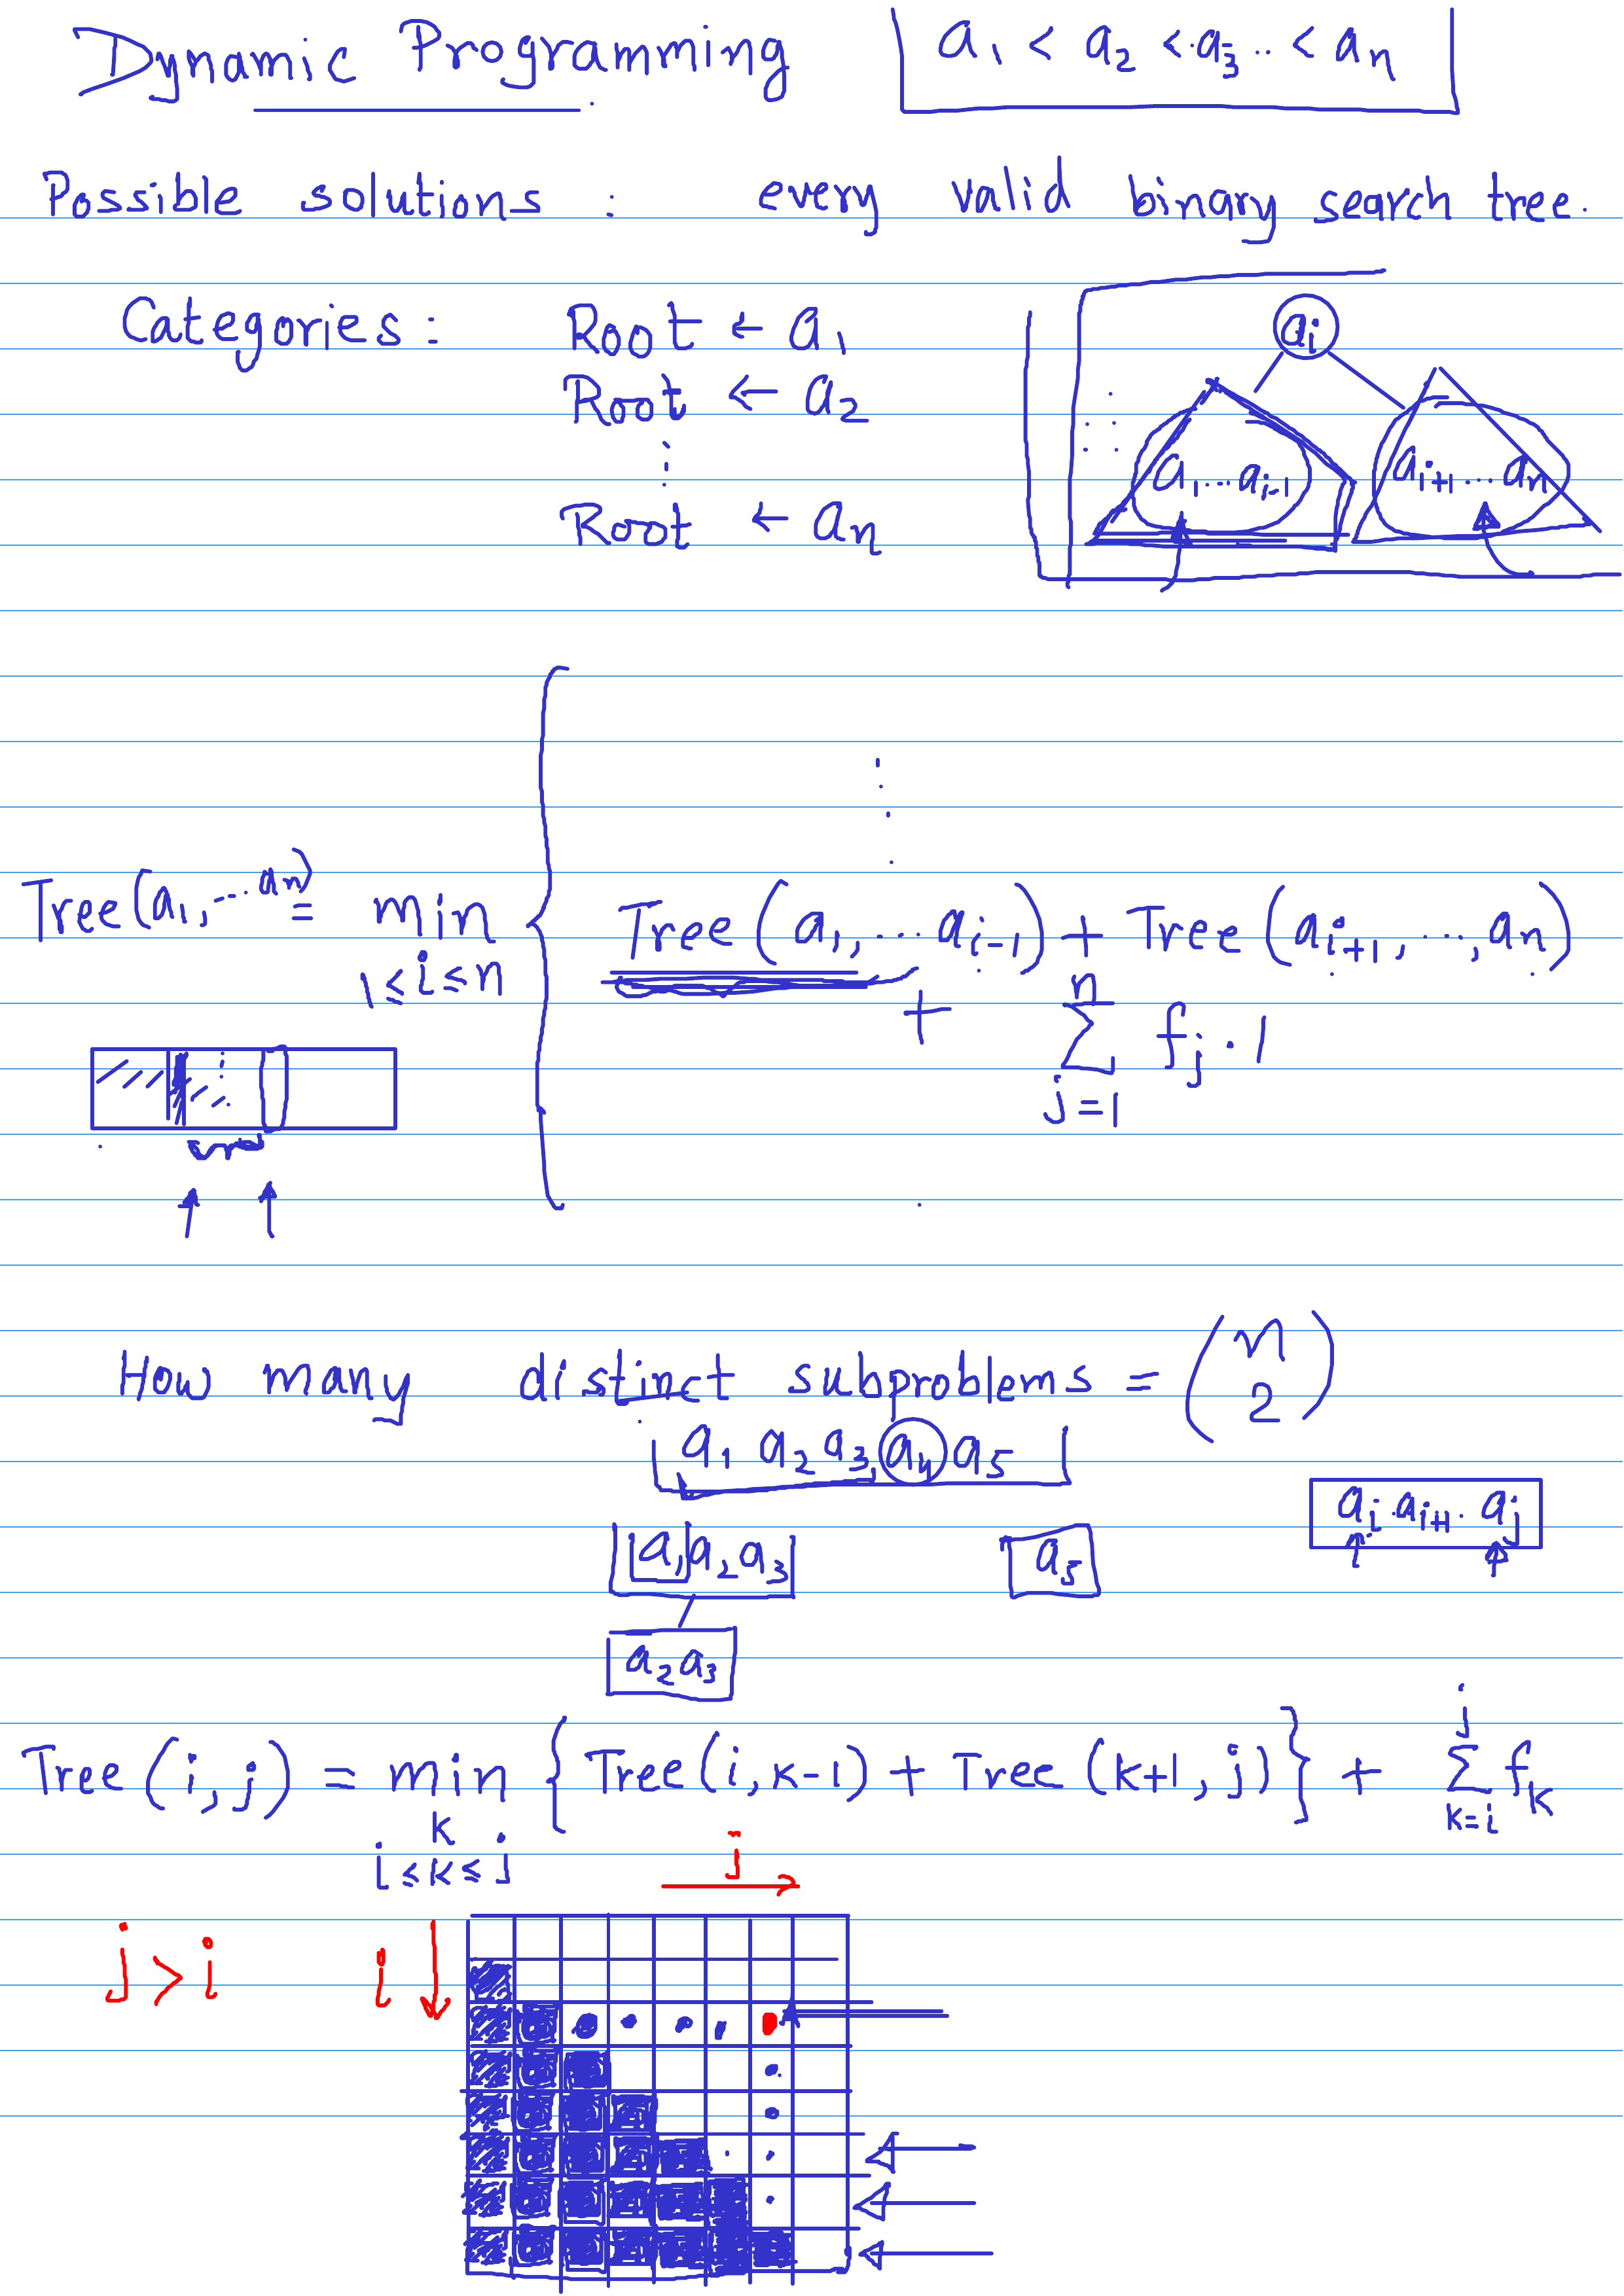 Dynamic Programming
a₁ < a₂ < a₃ ... < aₙ
Possible solutions : every valid binary search tree.
Categories : Root ← a₁
Root ← a₂
⋮
Root ← aₙ
aᵢ
a₁...aᵢ₋₁ aᵢ₊₁...aₙ
Tree(a₁, ... aₙ) = min { Tree(a₁, ... aᵢ₋₁) + Tree(aᵢ₊₁, ..., aₙ)
1 ≤ i ≤ n
+ n
∑ fⱼ . 1
j=1
How many distinct subproblems = (n 2)
a₁ a₂ a₃, a₄ a₅
aᵢ aᵢ₊₁ .. aⱼ
a₁ a₂ a₃ a₅
a₂ a₃
Tree(i, j) = min { Tree(i, k-1) + Tree(k+1, j) } + ∑ fₖ
k
i ≤ k ≤ j
j
k=i
j
j > i i